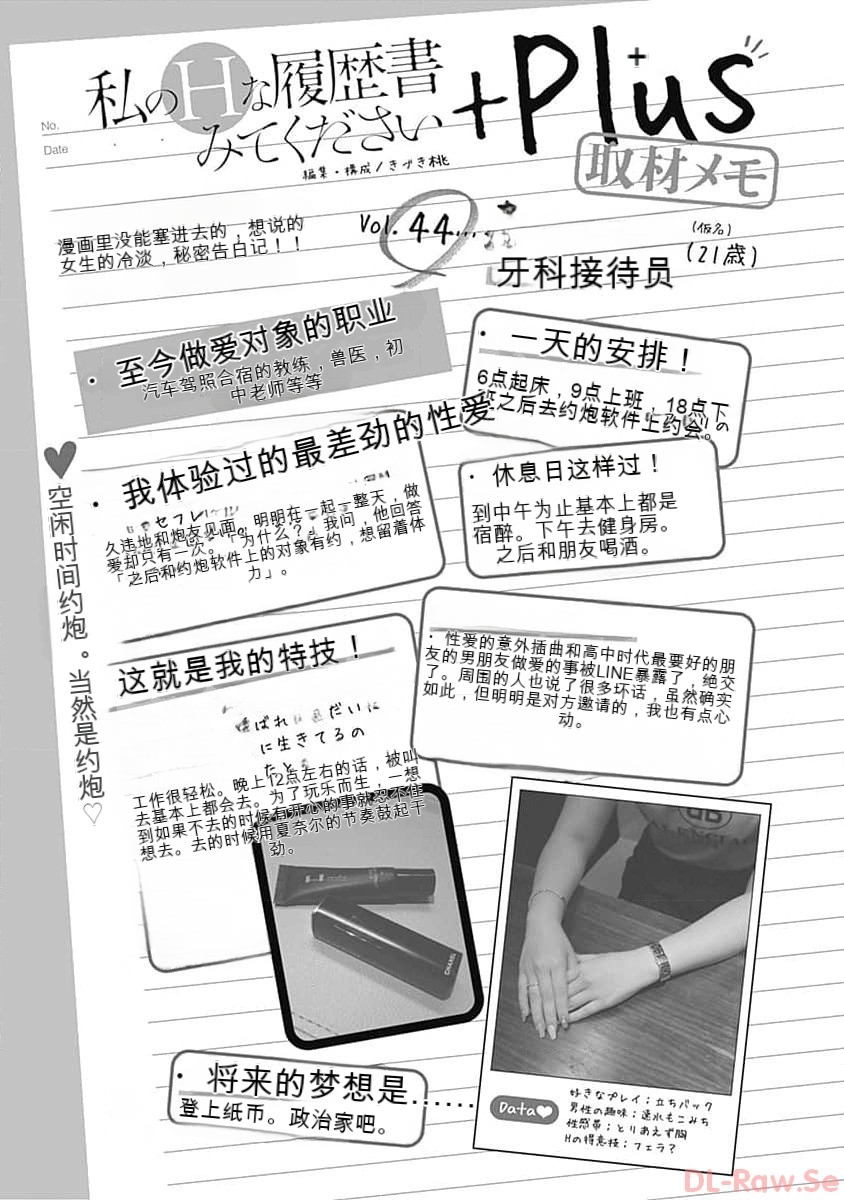 No.
Date
私のHな履歴書
みてください
+Plus
編集・構成/きづき桃
取材メモ
漫画里没能塞进去的，想说的
女生的冷淡，秘密告白记！！
Vol. 44...
(仮名)
(21歳)
牙科接待员
・至今做爱对象的职业
汽车驾照合宿的教练，兽医，初
中老师等等
・一天的安排！
6点起床，9点上班，18点下
班之后去约炮软件上约会。
・我体验过的最差劲的性爱
久违地和炮友见面。明明在一起一整天，做
爱却只有一次。「为什么？」我问，他回答
「之后和约炮软件上的对象有约，想留着体
力」。
・休息日这样过！
到中午为止基本上都是
宿醉。下午去健身房。
之后和朋友喝酒。
♥空闲时间约炮。当然是约炮♡
这就是我的特技！
に生きてるの
工作很轻松。晚上12点左右的话，被叫
去基本上都会去。为了玩乐而生，一想
到如果不去的时候有开心的事就忍不住
想去。去的时候用夏奈尔的节奏鼓起干
劲。
・性爱的意外插曲和高中时代最要好的朋
友的男朋友做爱的事被LINE暴露了，绝交
了。周围的人也说了很多坏话，虽然确实
如此，但明明是对方邀请的，我也有点心
动。
CHANEL
・将来的梦想是......
登上纸币。政治家吧。
Data♥
好きなプレイ；立ちバック
男性の趣味；速水もこみち
性感帯；とりあえず胸
Hの得意技；フェラ？
DL-Raw.Se